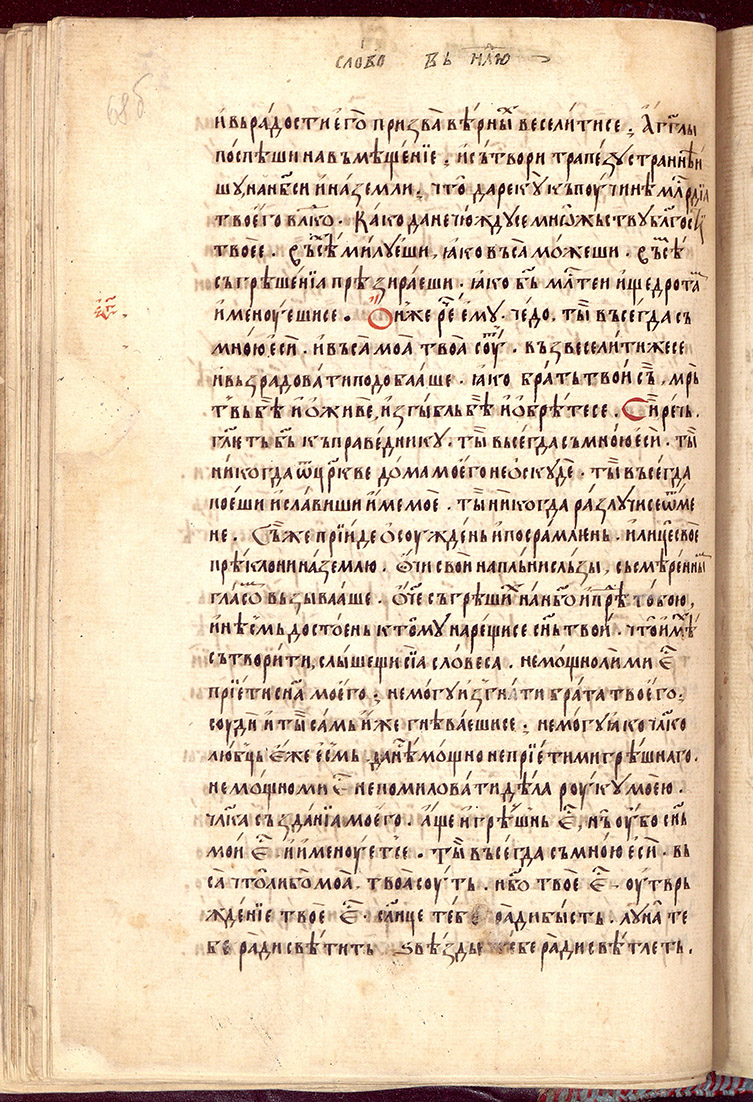 слово въ нл҃ю
68б
и҆ вь ра́дости є҆го̀ призва̀ вѣ́рныⷯ веселитисе ⁏ А҆гг҃лы
поспѣ́ши на въмѣще́нїе ⁏ и҆ сътвори трапе́зу страннѣи
шу, на нб҃си и҆ на земли ⁏ что̀ да реку̀ къ поучи́нѣ мл҃рдїа
твоего влⷣко · Ка́ко да не чю́ждусе мно́жьству бл҃гос
твоее · въсѣ́ ми́луеши, ꙗ҆ко въса̀ мо́жеши · въсѣ́
съгрѣше́нїа прѣзира́еши · ꙗ҆ко бь҃ мл҃тви и҆ щедрота
и҆меноу́ешисе · Ѻ҆н же рⷱ҇е є҆му̀ · че́до, ты̀ въсегда съ
мною є҆сѝ · и҆ въса̀ моа̀ твоа̀ соуⷮ · възвесели́тижесе
и҆ възрадова́ти подоба́аше · ꙗ҆ко бра́ть твои сь, мрь
твь бѣ̀ и҆ ѡ҆живе, и҆згы́бль бѣ̀ и҆ ѡ҆брѣ́тесе · Си́рѣчь,
гл҃еть бь҃ къ праве́днику · ты̀ въсегда съ мною є҆сѝ · ты̀
никогда ѿ цр҃кве до́ма моего не ѡ҆скудѣ̀ · ты̀ въсегда
пое́ши и҆ сла́виши и҆ме моѐ · ты̀ никогда ра́злучисе ѿ ме
не · Съ́ же прїи́де ѡ҆соужде́нь и҆ посра́млюнь · и҆ лице свое
прѣ́клони на зе́млю · Ѻ҆чи свои на́пльни слъзы, съ смѣре́нныⷨ
гла́соⷨ възыва́аше · Ѡ҆́ч҃е съгрѣши́хь на нб҃о и҆ прѣ́ тобою,
и҆ нѣ́смь досто́ень к томꙋ̀ нарещи́се сн҃ь твои · что̀ и҆мⷨѣ
сътвори́ти, слы́шещи сїа слове́са · не мощно ли ми є҆ⷭ
прїе́ти сн҃а моего ⁏ не могу̀ и҆згна́ти бра́та твое́го ⁏
соуди̂ и҆ ты̀ са́мь и҆́же гнѣва́ешисе ⁏ не могу̀ ꙗ҆ко чл҃ко
любⷰ҇ь є҆́же є҆́смь · занѐ мо́щно не прїе́ти ми грѣ́шнаго ·
не мо́щно ми є҆ⷭ не помилова́ти дѣ́ла роуку мое́ю ·
чл҃ка създа́нїа моего · а҆́ще и҆ грѣ́шнь є҆ⷭ, нъ̀ оу҆́бо сн҃ь
мои є҆ⷭ и҆ и҆меноу́етсе · ты̀ въсегда съ мною є҆сѝ · вь
са̀ что̀ либо моа̀ · твоа̀ соуть · нб҃о твое є҆ⷭ · оу҆тврь
жде́нїе твое є҆ⷭ · сл҃нце те́бе ра́ди бы́сть · лу́на те
бе ра́ди свѣ́тить ѕвѣ́зды те́бе ра́ди свѣ́тлеть ·